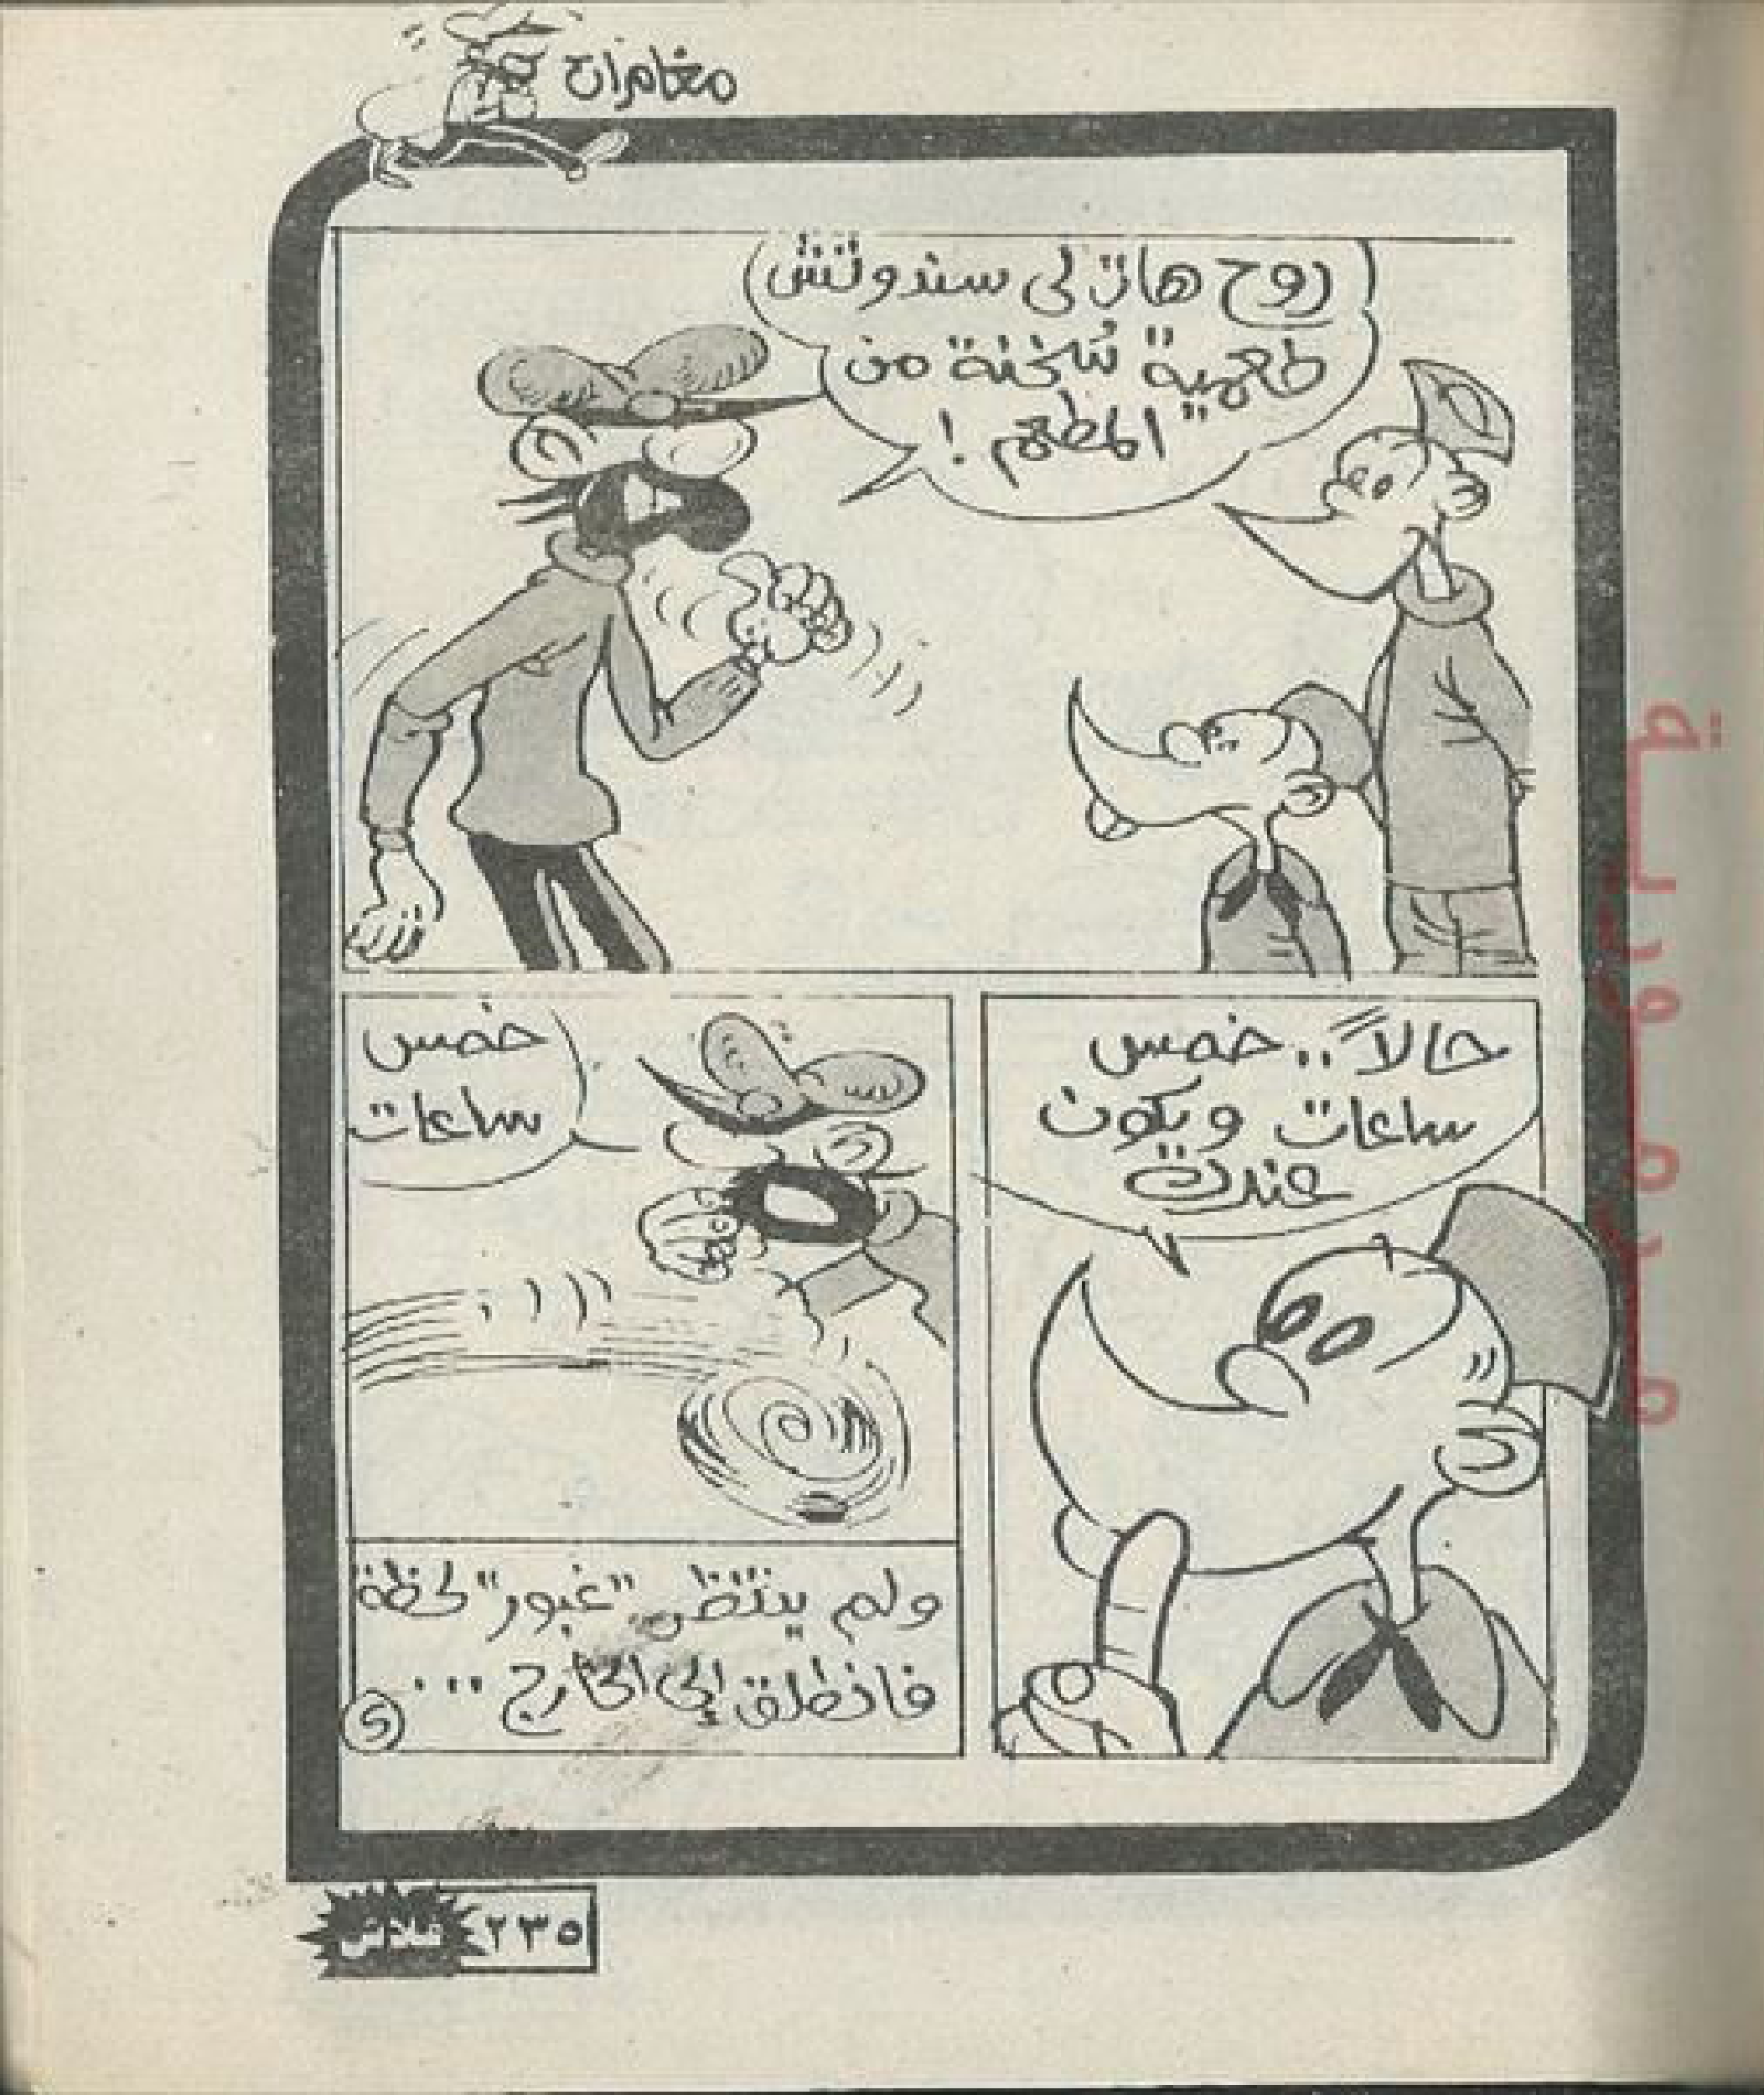 مغامرات
روح هات لى سندوتش
طعمية سُخنة من
المطعم !
حالاً .. خمس
ساعات ويكون
عندك
خمس
ساعات
ولم ينتظر "غبور" لحظة
فانطلق إلى الخارج ...
فلاش ٢٣٥